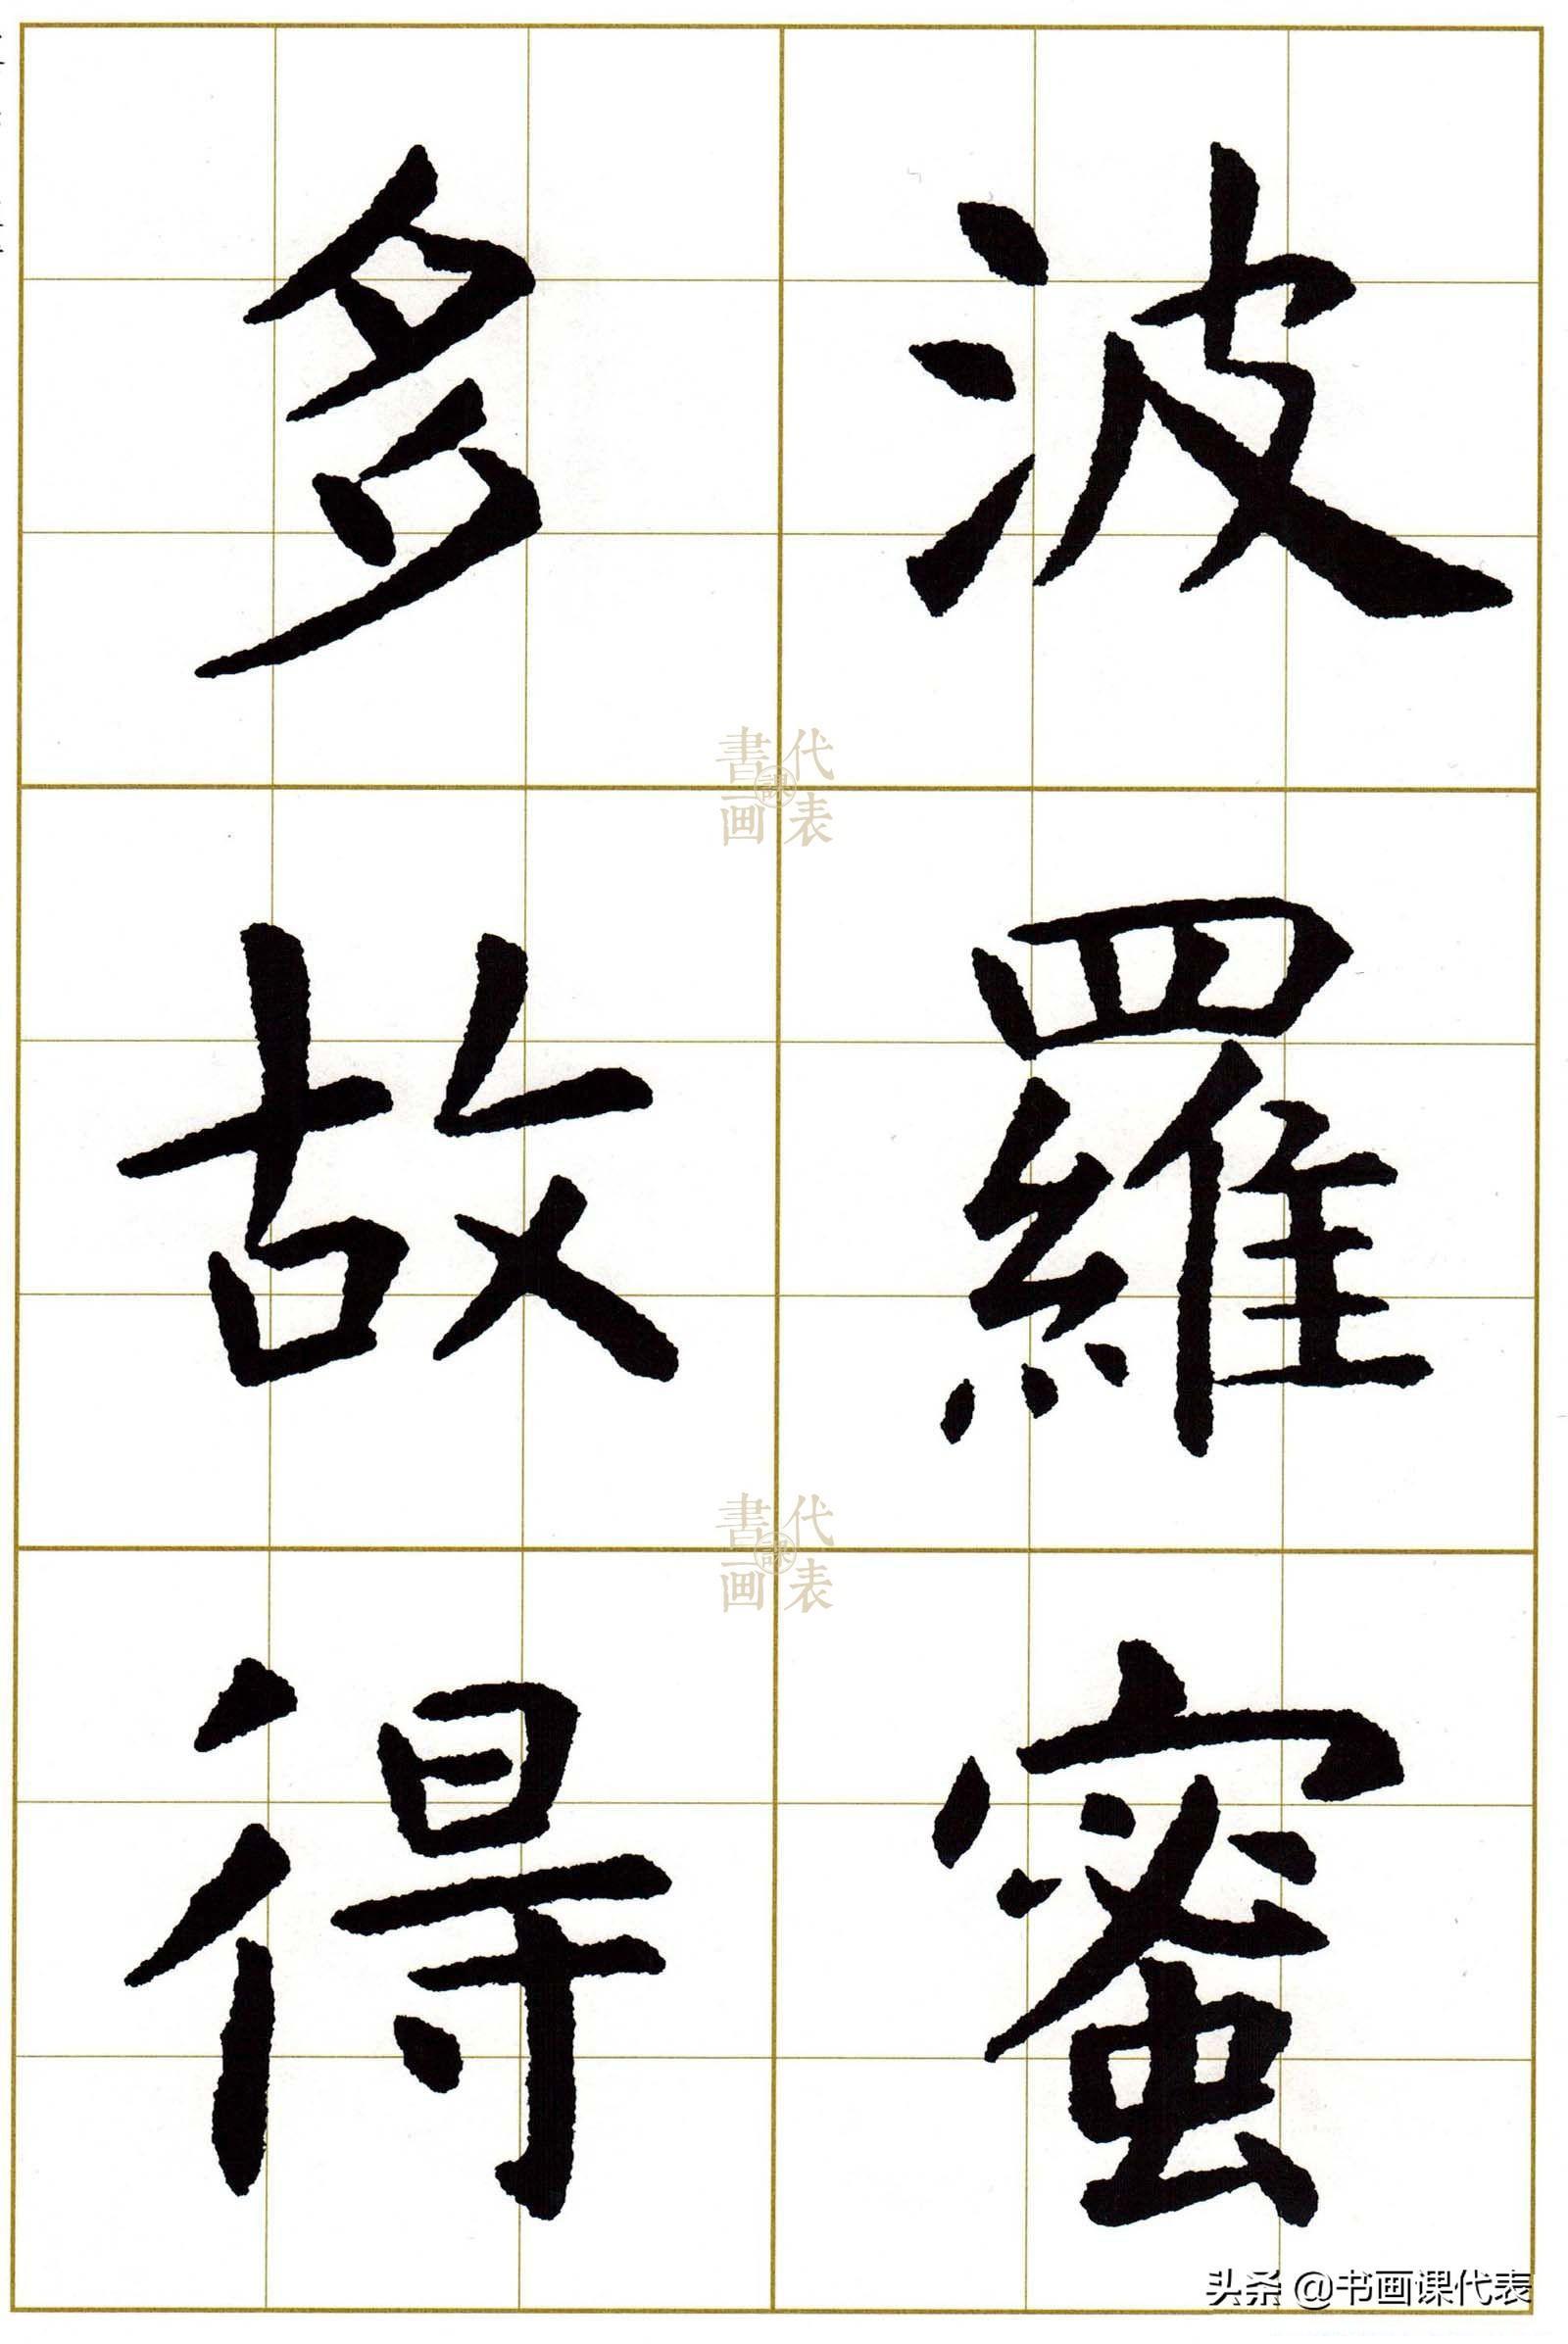 波羅蜜
多故得
書画課代表
書画課代表
头条 @书画课代表